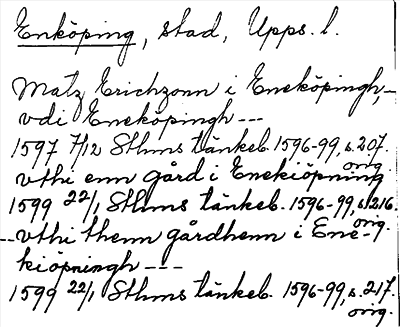 Enköping, stad, Upps. l.
Matz Erichzonn i Eneköpingh,–
vdi Eneköpingh ---
1597 7/12 Sthms tänkeb. 1596-99, s. 207.
orig.
vthi enn gård i Enekiöpning
1599 22/1 Sthms tänkeb. 1596-99, s. 216.
orig.
--vthi thenn gårdhenn i Ene-
kiöpningh ---
1599 22/1 Sthms tänkeb. 1596-99, s. 217.
orig.